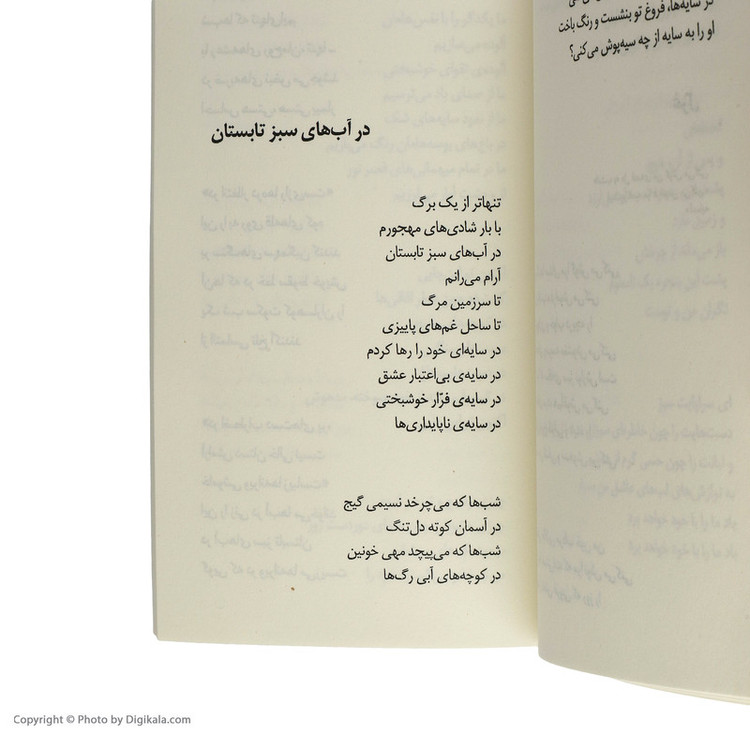 در سایه‌ها، فروغ تو بنشست و رنگ باخت
او را به سایه از چه سیه‌پوش می‌کنی؟
در آب‌های سبز تابستان
تنهاتر از یک برگ
با بار شادی‌های مهجورم
در آب‌های سبز تابستان
آرام می‌رانم
تا سرزمین مرگ
تا ساحل غم‌های پاییزی
در سایه‌ای خود را رها کردم
در سایه‌ی بی‌اعتبار عشق
در سایه‌ی فرّار خوشبختی
در سایه‌ی ناپایداری‌ها
شب‌ها که می‌چرخد نسیمی گیج
در آسمان کوته دل‌تنگ
شب‌ها که می‌پیچد مهی خونین
در کوچه‌های آبی رگ‌ها
Copyright © Photo by Digikala.com